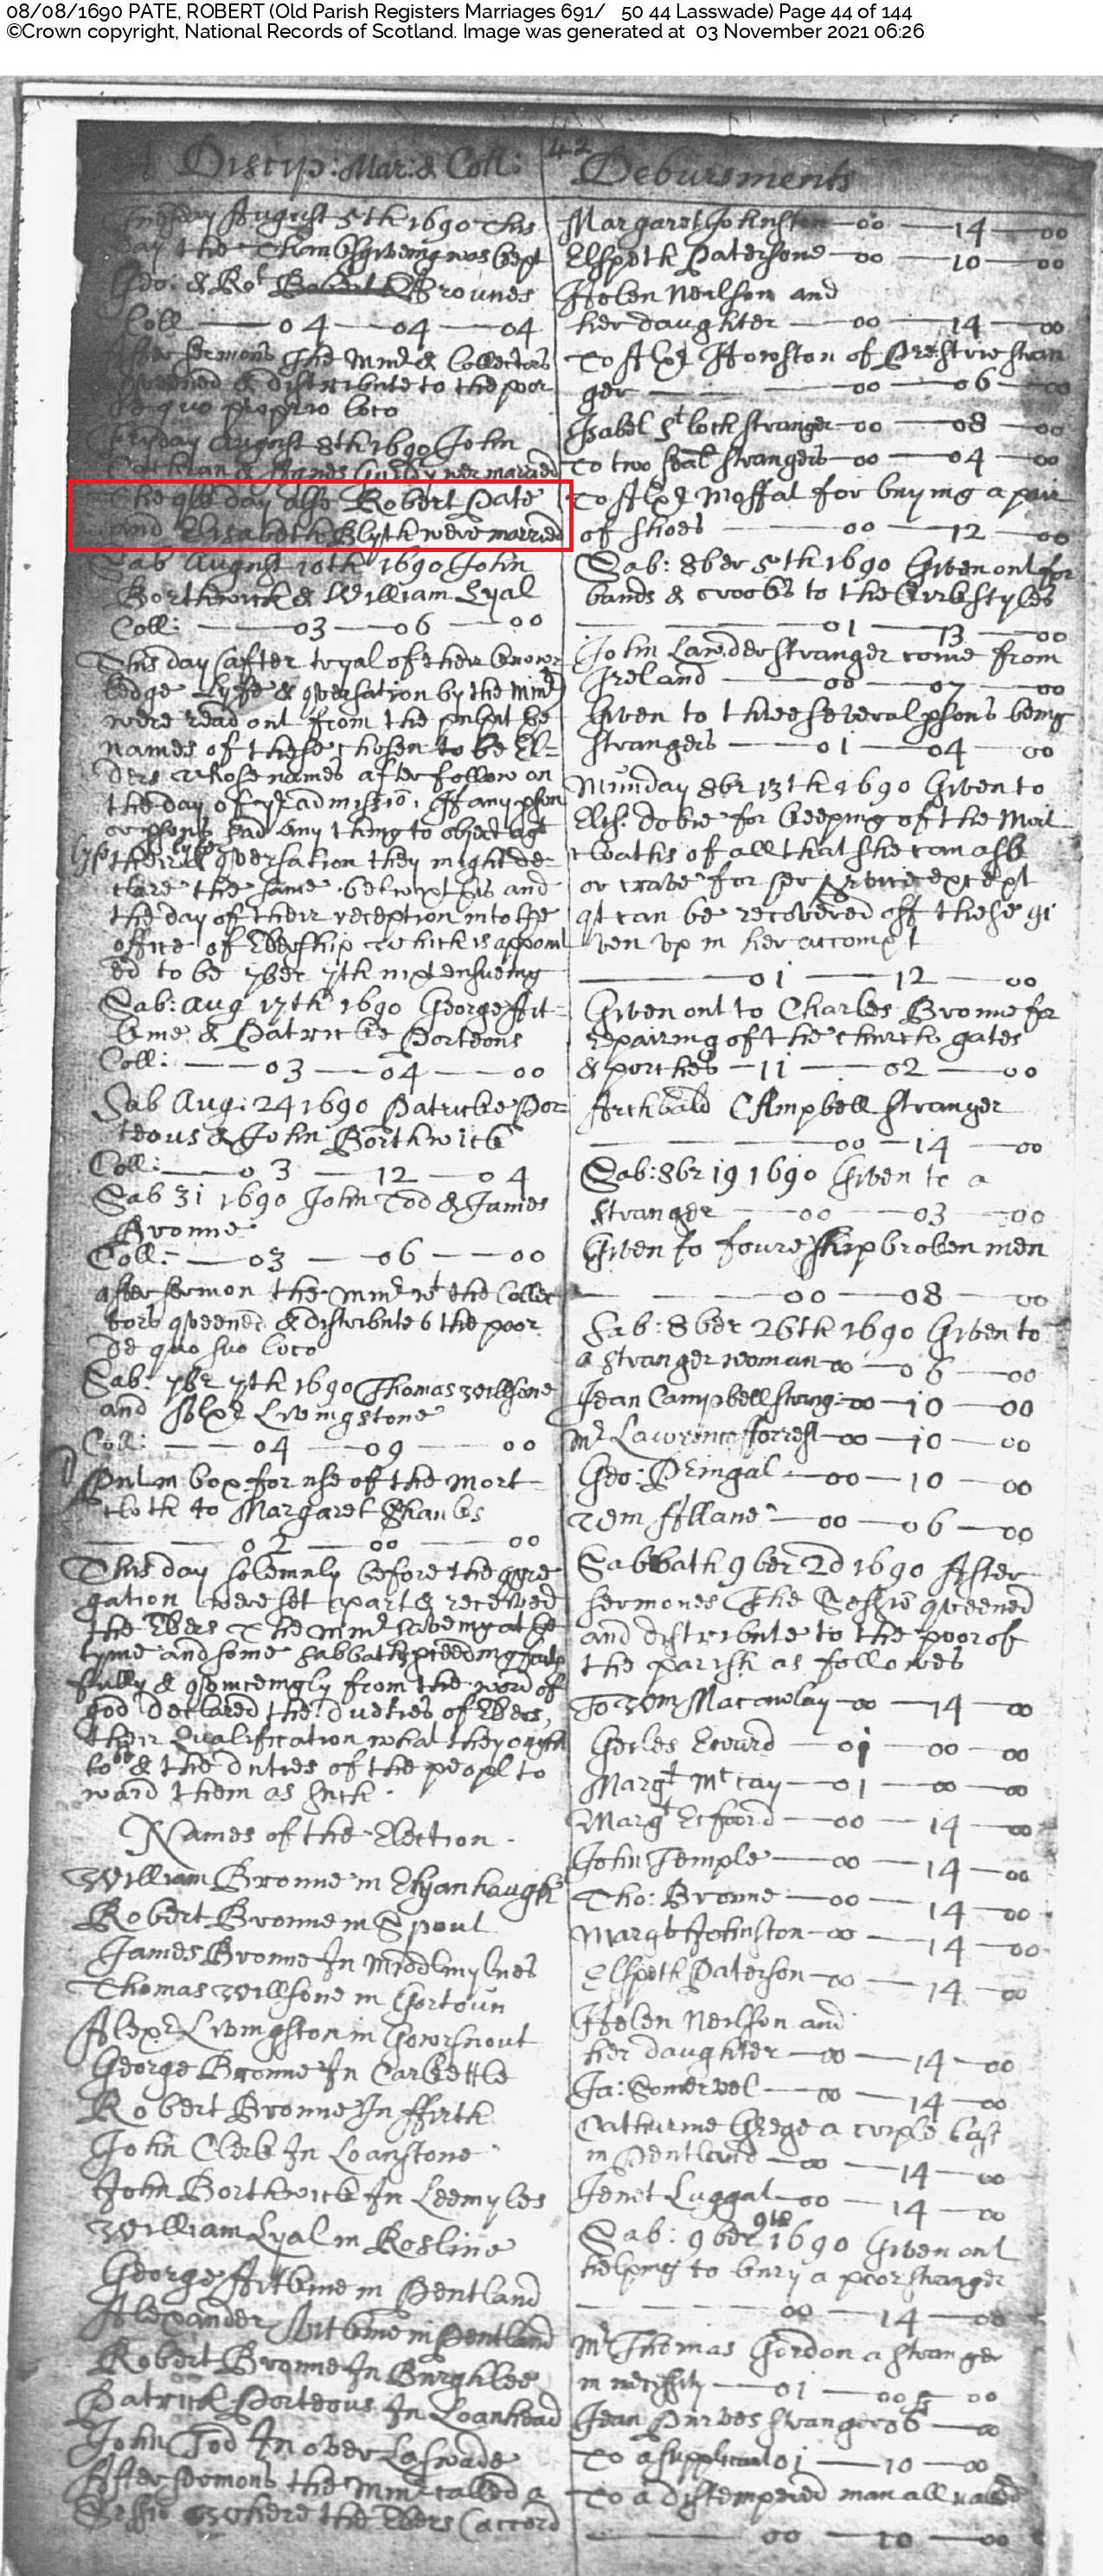 08/08/1690 PATE, ROBERT (Old Parish Registers Marriages 691/ 50 44 Lasswade) Page 44 of 144
©Crown copyright, National Records of Scotland. Image was generated at 03 November 2021 06:26
42
Discip: Mar: & Coll:
August 5th 1690 This
day the Thanksgiveing was kept
Geo: & Rot Brounes
Coll — 04 — 04 — 04
After sermons The Minr & Collectors
qveened & distribute to the poor
de quo proprio loco
Fryday August 8th 1690 John
& Agnes wer married
The qlk day also Robert Pate
and Elisabeth Blyth were married
Sab August 10th 1690 John
Borthwick & William Lyal
Coll: — 03 — 06 — 00
This day (after tryal of their know-
ledge Lyfe & qversation by the Minr)
were read out from the pulpit the
names of these chosen to be El=
ders whose names after follow on
the day of yr admissiō, If any pson
or psons had any thing to object agt
their qversation they might de-
clare the same betwixt this and
the day of their reception into the
office of Eldership which is appoint
ed to be 7ber 7th nixt ensueing
Sab: Aug 17th 1690 George Ait=
kine & Patricke Porteous
Coll: — 03 — 04 — 00
Sab Aug: 24 1690 Patricke Por=
teous & John Borthwick
Coll: — 03 — 12 — 04
Sab 31 1690 John Tod & James
Broune
Coll: — 03 — 06 — 00
after sermon the minr wt the Collec
tors qveened & distribute to the poor
de quo suo loco
Sab: 7br 7th 1690 Thomas Willsone
and Alxr Livingstone
Coll: — 04 — 09 — 00
Put in box for use of the mort
cloth to Margaret Shanks
— 02 — 00 — 00
This day solemnly before the qgre
gation were set apart & received
the Elders The minr haveing at the
tyme and some Sabbaths preceeding faith
fully & qvincingly from the word of
god declared the dueties of Elders,
their Qualification what they ought
to be & the duties of the peopl to
ward them as such.
Names of the Election.
William Broune in Elginhaugh
Robert Broune in Spout
James Broune In Middlmylnes
Thomas Willsone in Gortoun
Alexr Livingston in Gowrsnout
George Broune In Carkettle
Robert Broune In Ffirth
John Clerk In Loanstone
John Borthwick In Leemyles
William Lyal in Rosline
George Aitkine in Pentland
Alexander Aitkine in Pentland
Robert Broune In Burghlee
Patrick Porteous In Loanhead
John Tod In over Laswade
After Sermons the Minr called a
Sessiō where the Elders (accord
Debursments
Margaret Johnston — 00 — 14 — 00
Elspeth Patersone — 00 — 10 — 00
Helen Neilson and
her daughter — 00 — 14 — 00
To Alxr Howston of stran
ger — 00 — 06 — 00
Isabel stranger — 00 — 08 — 00
To two strangers — 00 — 04 — 00
To Alxr Moffat for buying a pair
of shoes — 00 — 12 — 00
Sab: 8ber 5th 1690 Given out for
bands & crooks to the kirk styles
— 01 — 13 — 00
John Lawder stranger come from
Ireland — 00 — 07 — 00
Given to three several psons being
strangers — 01 — 04 — 00
Munday 8br 13th 1690 Given to
Elis: Dobie for keeping of the Mort
cloaths of all that she can ask
or crave for her service except
qt can be recovered off these gi
ven up in her accompt
— 01 — 12 — 00
Given out to Charles Broune for
repairing of the church gates
& porches — 11 — 02 — 00
Archbald Campbell stranger
— 00 — 14 — 00
Sab: 8br 19 1690 Given to a
stranger — 00 — 03 — 00
Given to foure shipbroken men
— 00 — 08 — 00
Sab: 8ber 26th 1690 Given to
a stranger woman — 00 — 06 — 00
Jean Campbell strang: — 00 — 10 — 00
Mr Lawrence Forrest — 00 — 10 — 00
Geo: Pringal — 00 — 10 — 00
Wm Allane — 00 — 06 — 00
Sabbath 9ber 2d 1690 After
sermones The Sessiō qveened
and distribute to the poor of
the parish as followes
To Wm Macawlay — 00 — 14 — 00
Geiles Ewardd — 01 — 00 — 00
Margt Mccay — 01 — 00 — 00
Margt Ecfoord — 00 — 14 — 00
John Temple — 00 — 14 — 00
Tho: Broune — 00 — 14 — 00
Margt Johnston — 00 — 14 — 00
Elspeth Paterson — 00 — 14 — 00
Helen Neilson and
her daughter — 00 — 14 — 00
Ja: Somervel — 00 — 14 — 00
Catharine Grege a criple last
in Pentland — 00 — 14 — 00
Jenet Luggat — 00 — 14 — 00
Sab: 9ber 9th 1690 Given out
helping to bury a poor stranger
— 00 — 14 — 00
Mr Thomas Gordon a stranger
in necessity — 01 — 00 — 00
Jean Purves stranger 06 — 00
To a supplicant 01 — 10 — 00
To a distempered man all naked
— 00 — 10 — 00